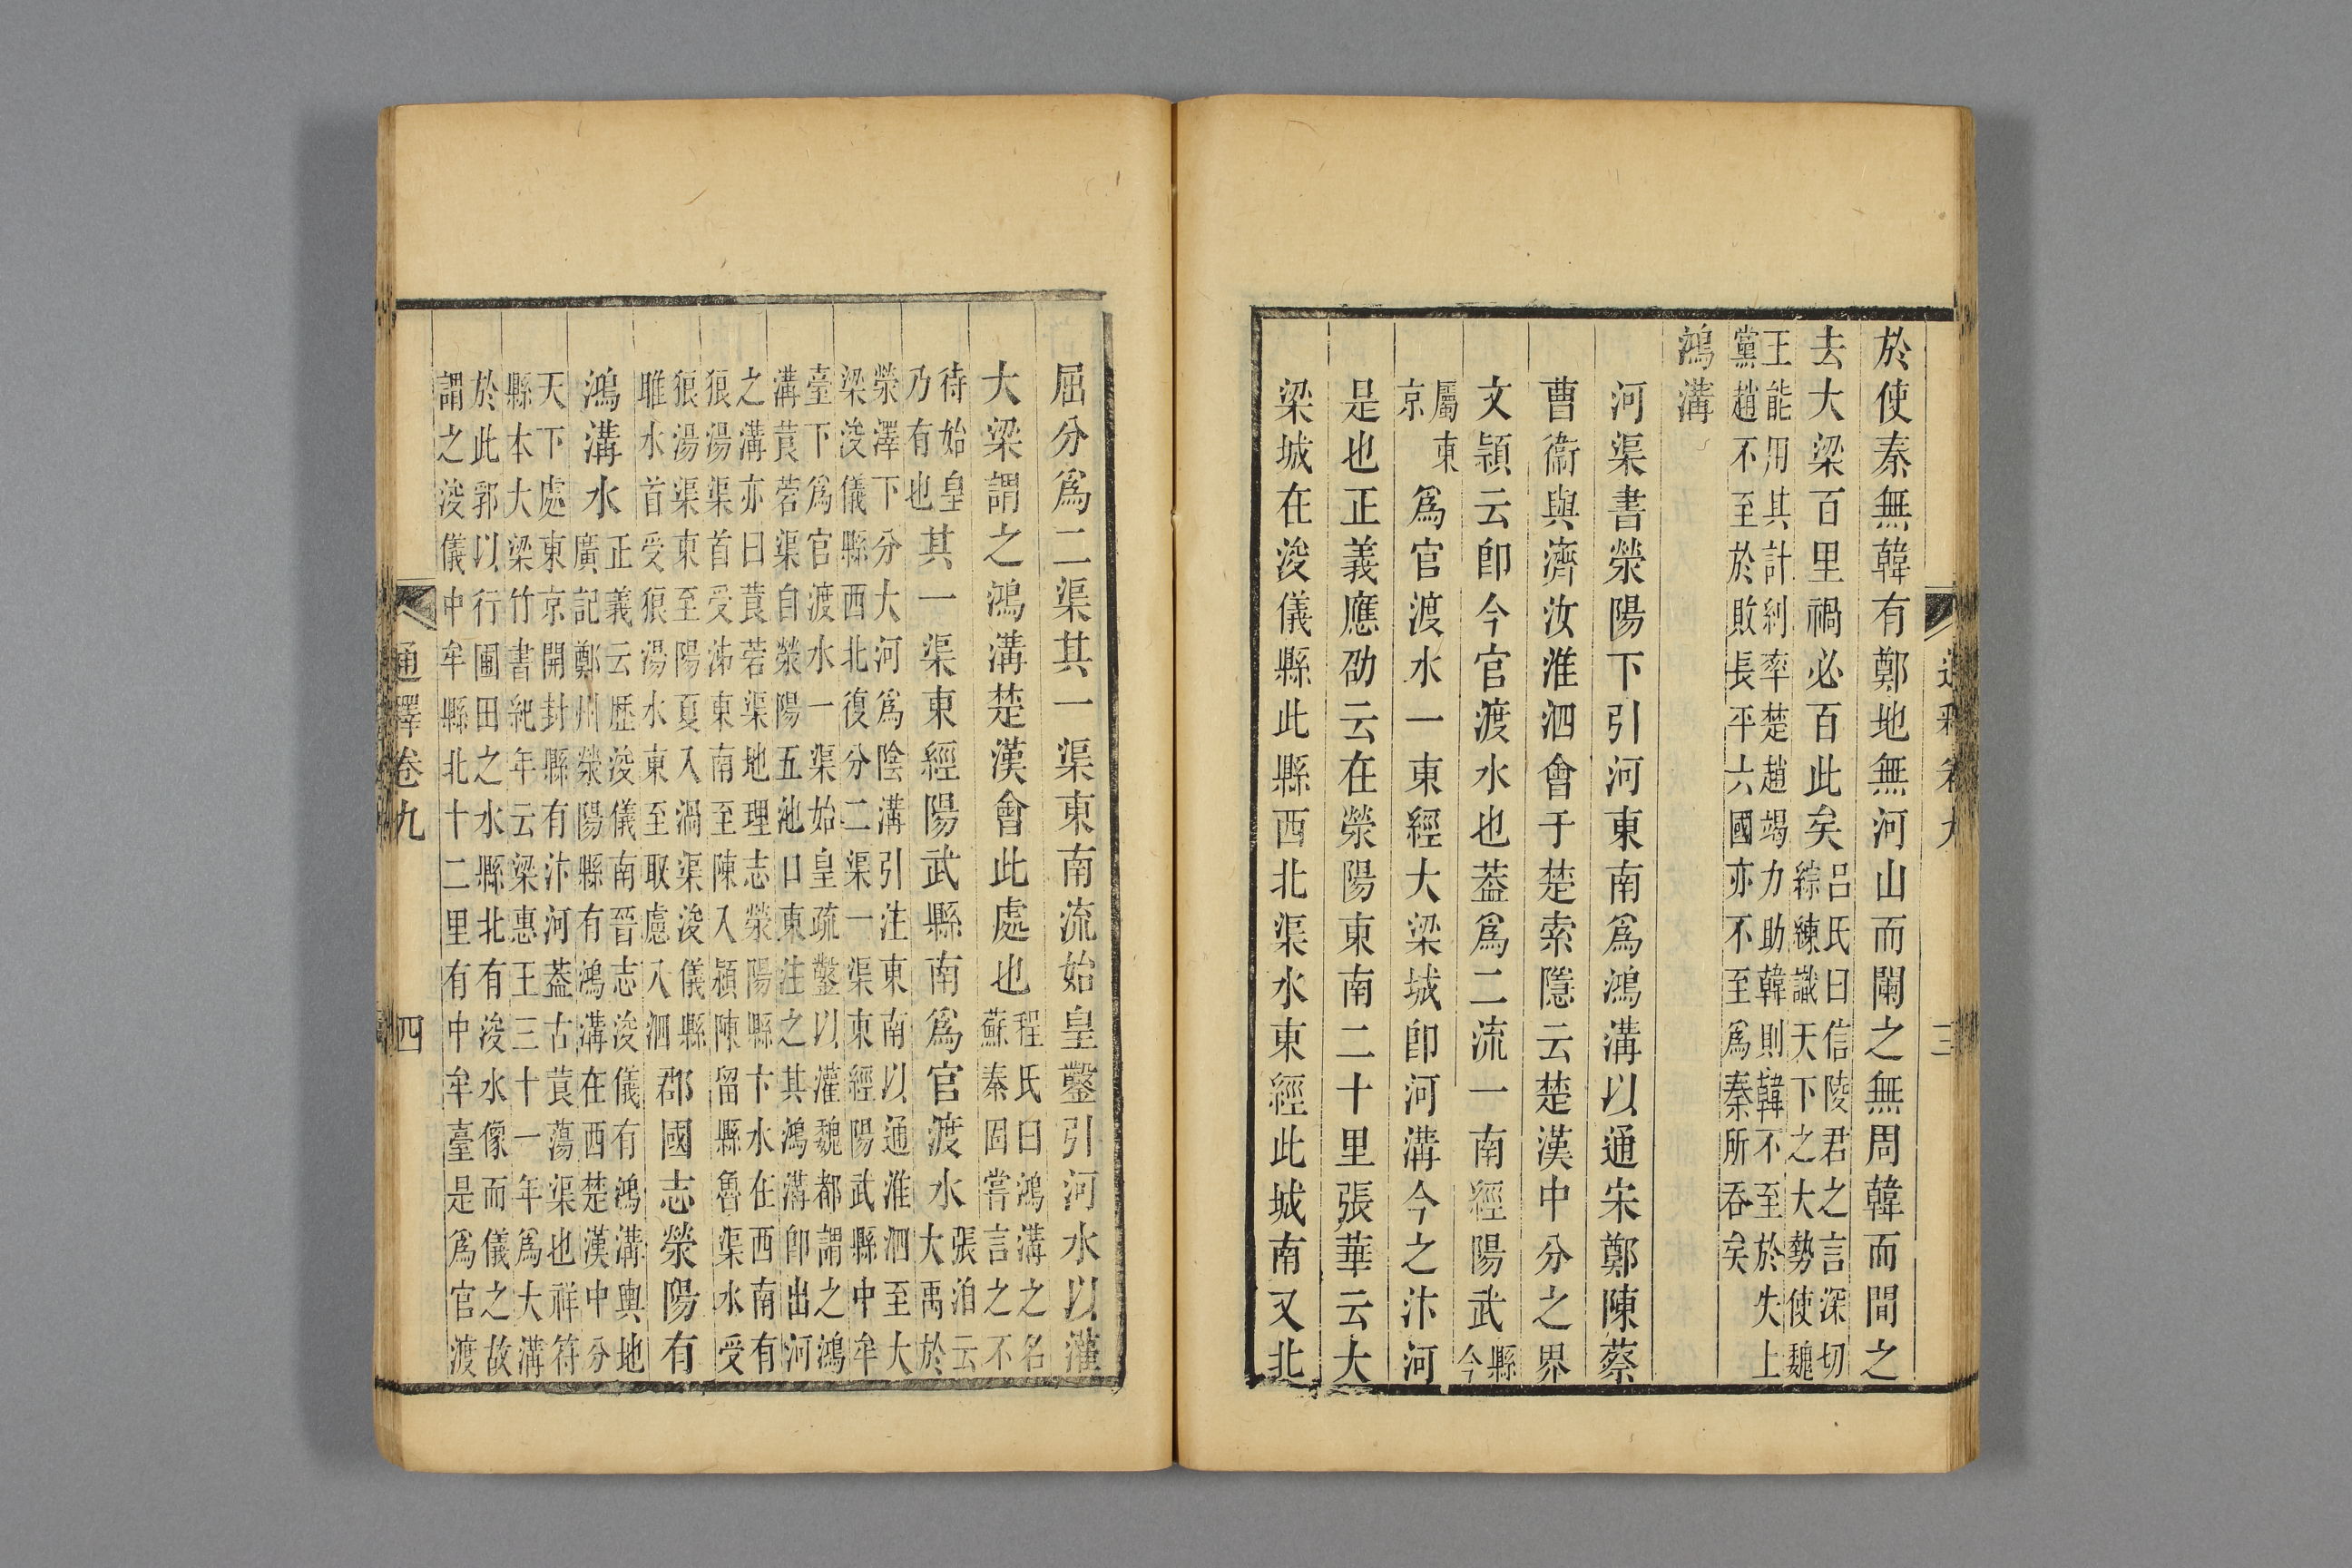 於使秦無韓有鄭地無河山而闌之無周韓而間之
去大梁百里禍必百此矣呂氏曰信陵君之言深切
綜練識天下之大勢使魏
王能用其計剝率楚趙竭力助韓則韓不至於失上
黨趙不至於敗長平六國亦不至爲秦所吞矣
鴻溝
河渠書滎陽下引河東南爲鴻溝以通宋鄭陳蔡
曹衞與濟汝淮泗會于楚索隱云楚漢中分之界
文穎云卽今官渡水也葢爲二流一南經陽武縣
今
屬東
京
爲官渡水一東經大梁城卽河溝今之汴河
是也正義應劭云在滎陽東南二十里張華云大
梁城在浚儀縣此縣西北渠水東經此城南又北
屈分爲二渠其一渠東南流始皇鑿引河水以灌
大梁謂之鴻溝楚漢會此處也程氏曰鴻溝之名
蘇秦固嘗言之不
待始皇
乃有也
其一渠東經陽武縣南爲官渡水張洎云
大禹於
滎澤下分大河爲陰溝引注東南以通淮泗至大
梁浚儀縣西北復分二渠一渠東經陽武縣中牟
臺下爲官渡水一渠始皇疏鑿以灌魏都謂之鴻
溝莨菪渠自滎陽五池口東注之其鴻溝卽出河
之溝亦曰莨菪渠地理志滎陽縣卞水在西南有
狼湯渠首受泲東南至陳入潁陳留縣魯渠水受
狼湯渠東至陽夏入渦渠浚儀縣
睢水首受狼湯水東至取慮入泗
郡國志滎陽有
鴻溝水正義云歷浚儀南晉志浚儀有鴻溝輿地
廣記鄭州滎陽縣有鴻溝在西楚漢中分
天下處東京開封縣有汴河葢古莨蕩渠也祥符
縣本大梁竹書紀年云梁惠王三十一年爲大溝
於此郭以行圃田之水縣北有浚水像而儀之故
謂之浚儀中牟縣北十二里有中牟臺是爲官渡
通釋卷九
四